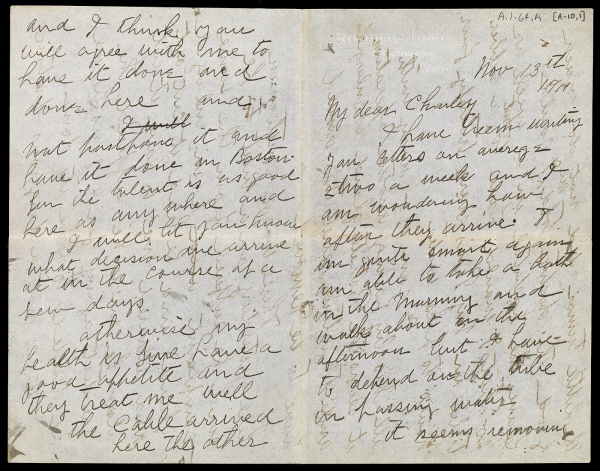 and I think you
will agree with me to
have it done and
done here and
I will
not postpone it and
have it done in Boston
for the talent is as good
here as any where and
I will let you know
what decision we arrive
at in the course of a
few days.
otherwise my
health is fine have a
good appetite and
they treat me well
the Cable arrived
here the other
A.1.64.A. [A-10,1]
Nov 13th
My dear Charley
I have been writing
you letters on averg=
=two a week and I
am wondering how
often they arrive. I
am quite smart again
am able to take a bath
in the morning and
walk about in the
afternoon but I have
to depend on the tube
in passing water
it seems removing